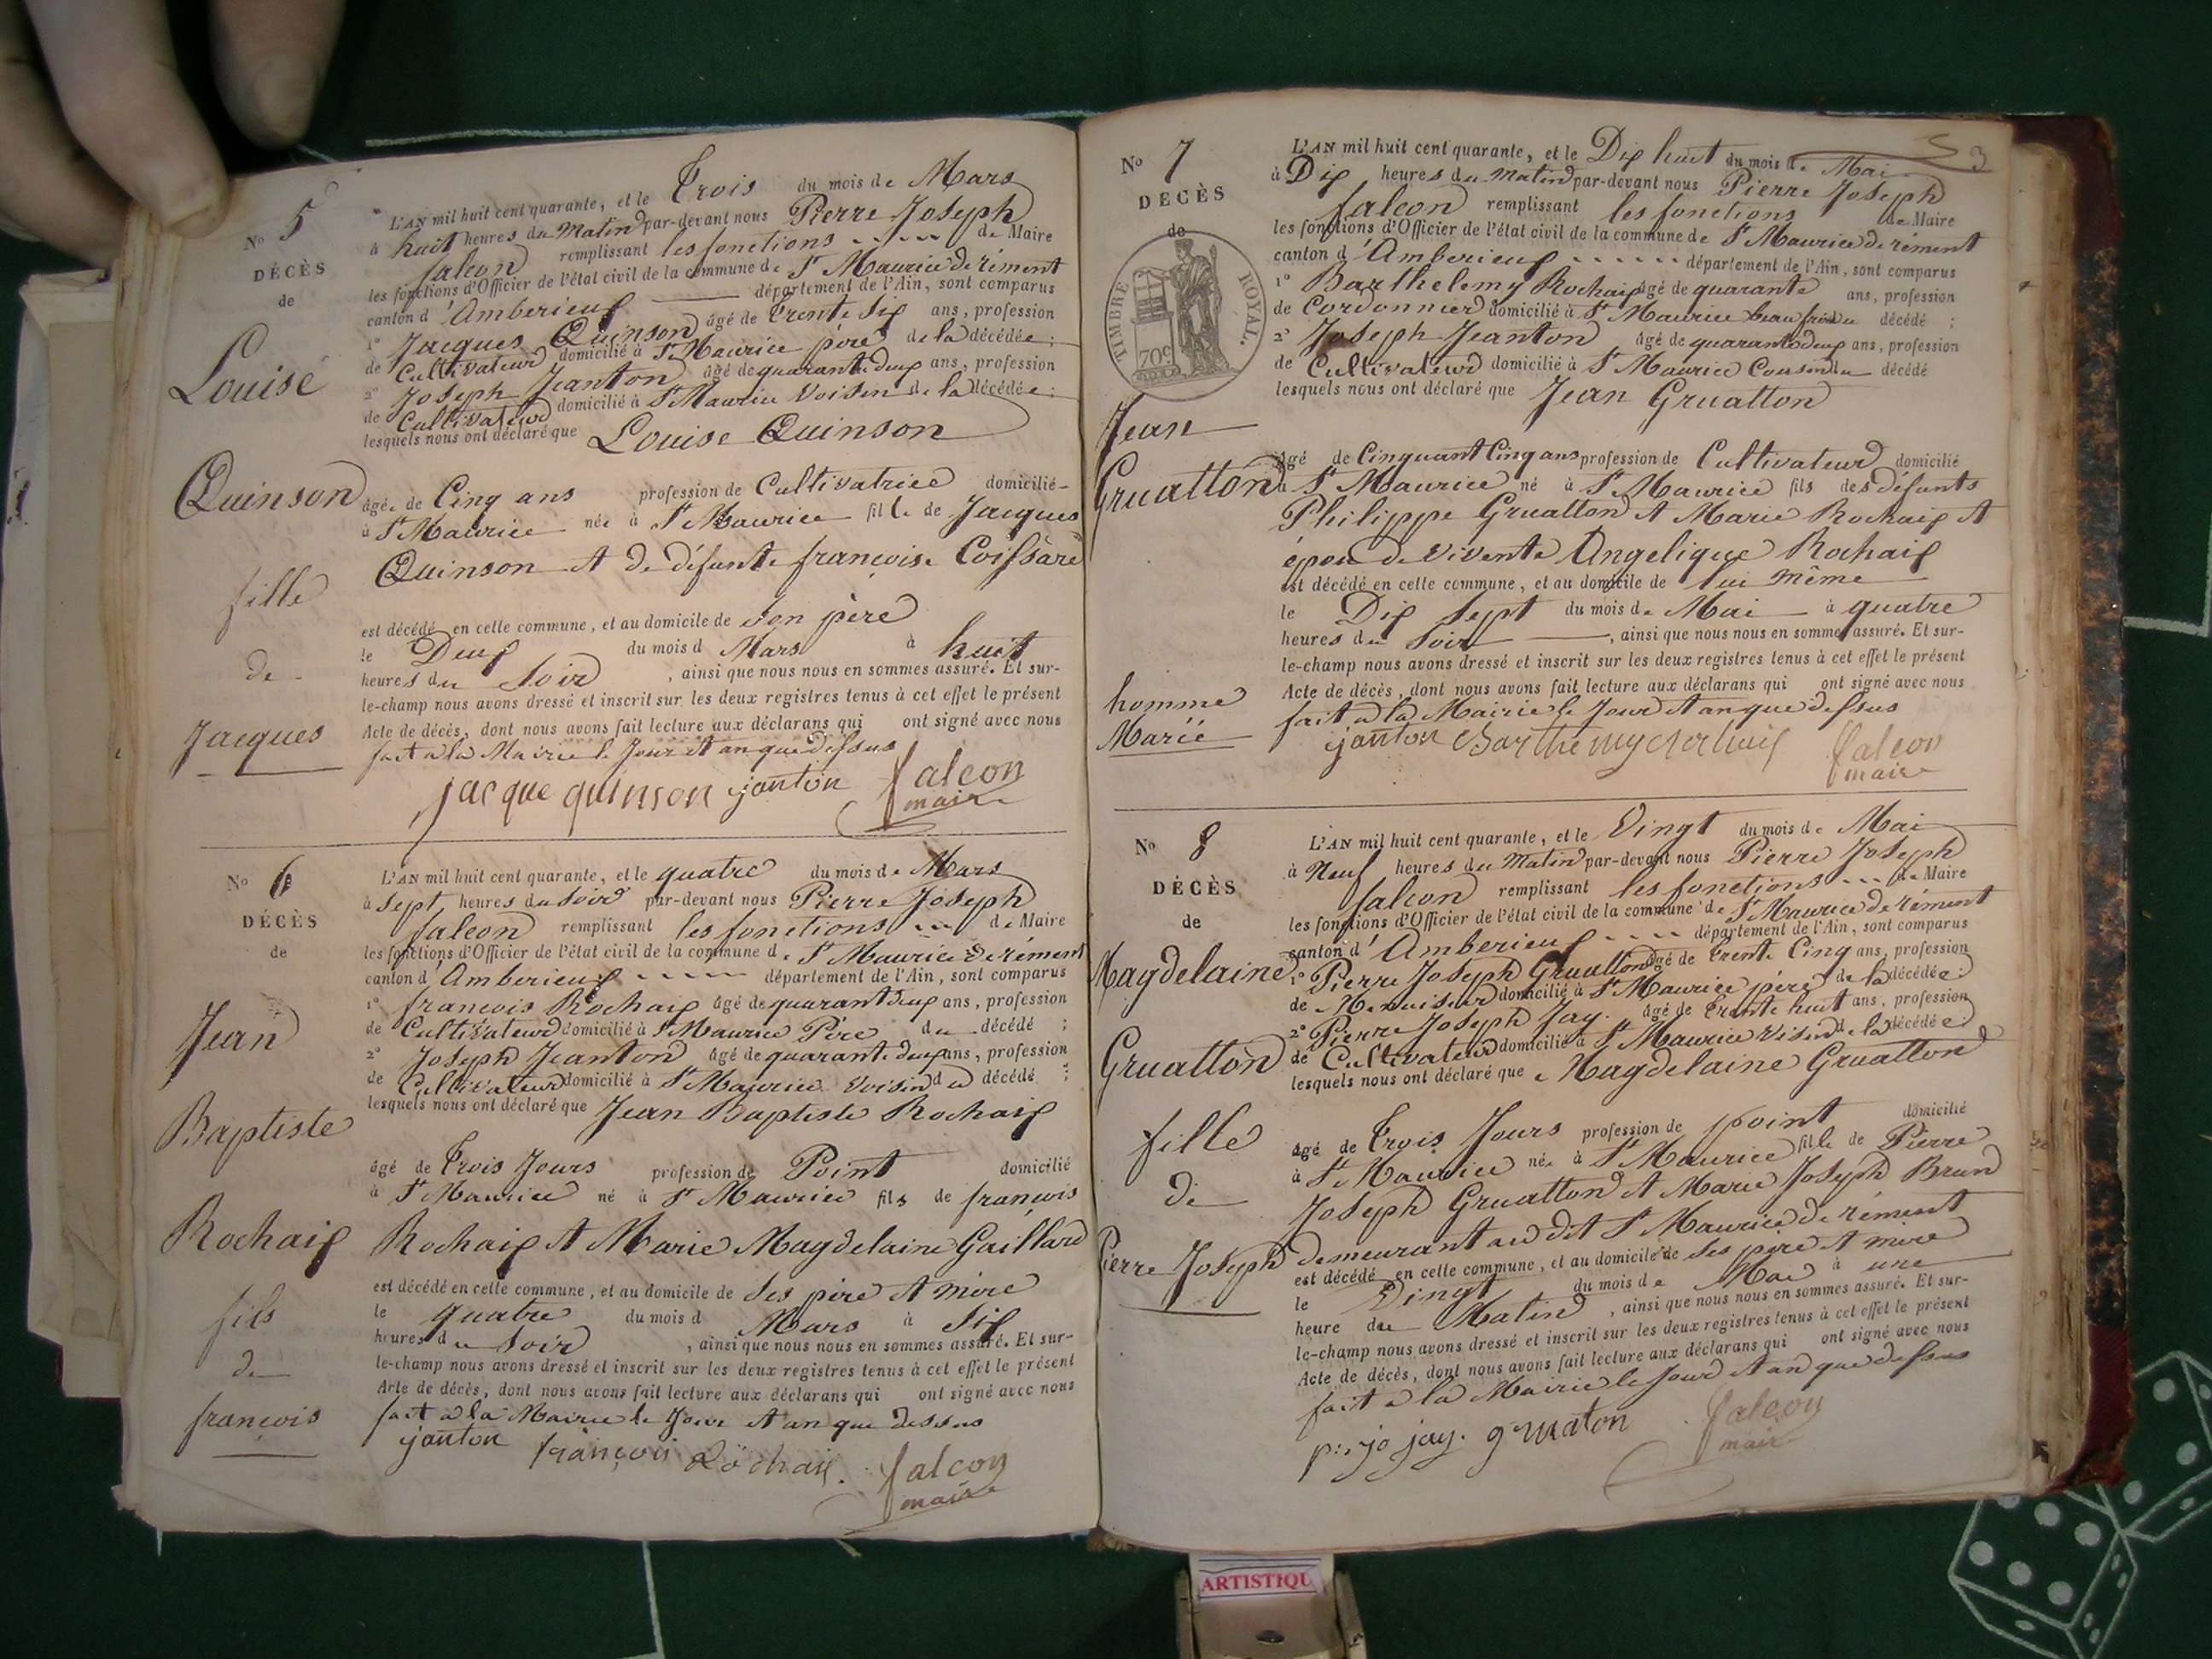 No 5
DÉCÈS
de
Louise
Quinson
fille
de
Jacques
L'AN mil huit cent quarante, et le Trois du mois de Mars
à huit heures du Matin par-devant nous Pierre Joseph
falcon remplissant les fonctions de Maire
les fonctions d'Officier de l'état civil de la commune de St Maurice de rément
canton d'Amberieux département de l'Ain, sont comparus
1° Jacques Quinson âgé de trente Six ans, profession
de Cultivateur domicilié à St Maurice père de la décédée;
2° Joseph Jeanton âgé de quarante deux ans, profession
de Cultivateur domicilié à St Maurice Voisin de la décédée;
lesquels nous ont déclaré que Louise Quinson
âgée de Cinq ans profession de Cultivatrice domicilié
à St Maurice née à St Maurice fille de Jacques
Quinson et de défunte françoise Coissare
est décédé en cette commune, et au domicile de Son père
le Deux du mois d Mars à huit
heures du Soir, ainsi que nous nous en sommes assuré. Et sur-
le-champ nous avons dressé et inscrit sur les deux registres tenus à cet effet le présent
Acte de décès, dont nous avons fait lecture aux déclarans qui ont signé avec nous
fait a la Mairie le Jour et an que dessus
jacque quinson janton falcon
maire
No 6
DÉCÈS
de
Jean
Baptiste
Rochaix
fils
de
françois
L'AN mil huit cent quarante, et le quatre du mois de Mars
à Sept heures du Soir par-devant nous Pierre Joseph
falcon remplissant les fonctions de Maire
les fonctions d'Officier de l'état civil de la commune d. St Maurice de rément
canton d'Amberieux département de l'Ain, sont comparus
1° françois Rochaix âgé de quarant deux ans, profession
de Cultivateur domicilié à St Maurice Père du décédé;
2° Joseph Jeanton âgé de quarante deux ans, profession
de Cultivateur domicilié à St Maurice Voisin du décédé;
lesquels nous ont déclaré que Jean Baptiste Rochaix
âgé de Trois Jours profession de Point domicilié
à St Maurice né à St Maurice fils de françois
Rochaix et Marie Magdelaine Gaillard
est décédé en cette commune, et au domicile de Ses père et mère
le quatre du mois d Mars à Six
heures du Soir, ainsi que nous nous en sommes assuré. Et sur-
le-champ nous avons dressé et inscrit sur les deux registres tenus à cet effet le présent
Acte de décès, dont nous avons fait lecture aux déclarans qui ont signé avec nous
fait a la Mairie le Jour et an que dessus
janton françois Rochaix falcon
maire
3
No 7
DÉCÈS
de
TIMBRE ROYAL.
70c
Jean
Gruatton
homme
Marié
L'AN mil huit cent quarante, et le Dix huit du mois de Mai
à Dix heures du Matin par-devant nous Pierre Joseph
falcon remplissant les fonctions de Maire
les fonctions d'Officier de l'état civil de la commune de St Maurice de rément
canton d'Amberieux département de l'Ain, sont comparus
1° Barthelemy Rochaix âgé de quarante ans, profession
de Cordonnier domicilié à St Maurice beau frère du décédé;
2° Joseph Jeanton âgé de quarante deux ans, profession
de Cultivateur domicilié à St Maurice Cousin du décédé
lesquels nous ont déclaré que Jean Gruatton
âgé de Cinquant Cinq ans profession de Cultivateur domicilié
à St Maurice né à St Maurice fils des défunts
Philippe Gruatton et Marie Rochaix et
époux de vivente Angelique Rochaix
est décédé en cette commune, et au domicile de lui même
le Dix Sept du mois de Mai à quatre
heures du Soir, ainsi que nous nous en sommes assuré. Et sur-
le-champ nous avons dressé et inscrit sur les deux registres tenus à cet effet le présent
Acte de décès, dont nous avons fait lecture aux déclarans qui ont signé avec nous
fait a la Mairie le Jour et an que dessus
janton falcon
maire
No 8
DÉCÈS
de
Magdelaine
Gruatton
fille
De
Pierre Joseph
L'AN mil huit cent quarante, et le Vingt du mois de Mai
à Neuf heures du Matin par-devant nous Pierre Joseph
falcon remplissant les fonctions de Maire
les fonctions d'Officier de l'état civil de la commune de St Maurice de rément
canton d'Amberieux département de l'Ain, sont comparus
1° Pierre Joseph Gruatton âgé de trente Cinq ans, profession
de Menuisier domicilié à St Maurice père de la décédée;
2° Pierre Joseph Jay. âgé de trente huit ans, profession
de Cultivateur domicilié à St Maurice Voisin de la décédée;
lesquels nous ont déclaré que Magdelaine Gruatton
âgé de Trois Jours profession de point domicilié
à St Maurice née à St Maurice fille de Pierre
Joseph Gruatton et Marie Joseph Brun
demeurant au dit St Maurice de rément
est décédé en cette commune, et au domicile de Ses père et mère
le Vingt du mois de Mai à une
heure du Matin, ainsi que nous nous en sommes assuré. Et sur-
le-champ nous avons dressé et inscrit sur les deux registres tenus à cet effet le présent
Acte de décès, dont nous avons fait lecture aux déclarans qui ont signé avec nous
fait a la Mairie le Jour et an que dessus
jay. gruaton falcon
maire
ARTISTIQU